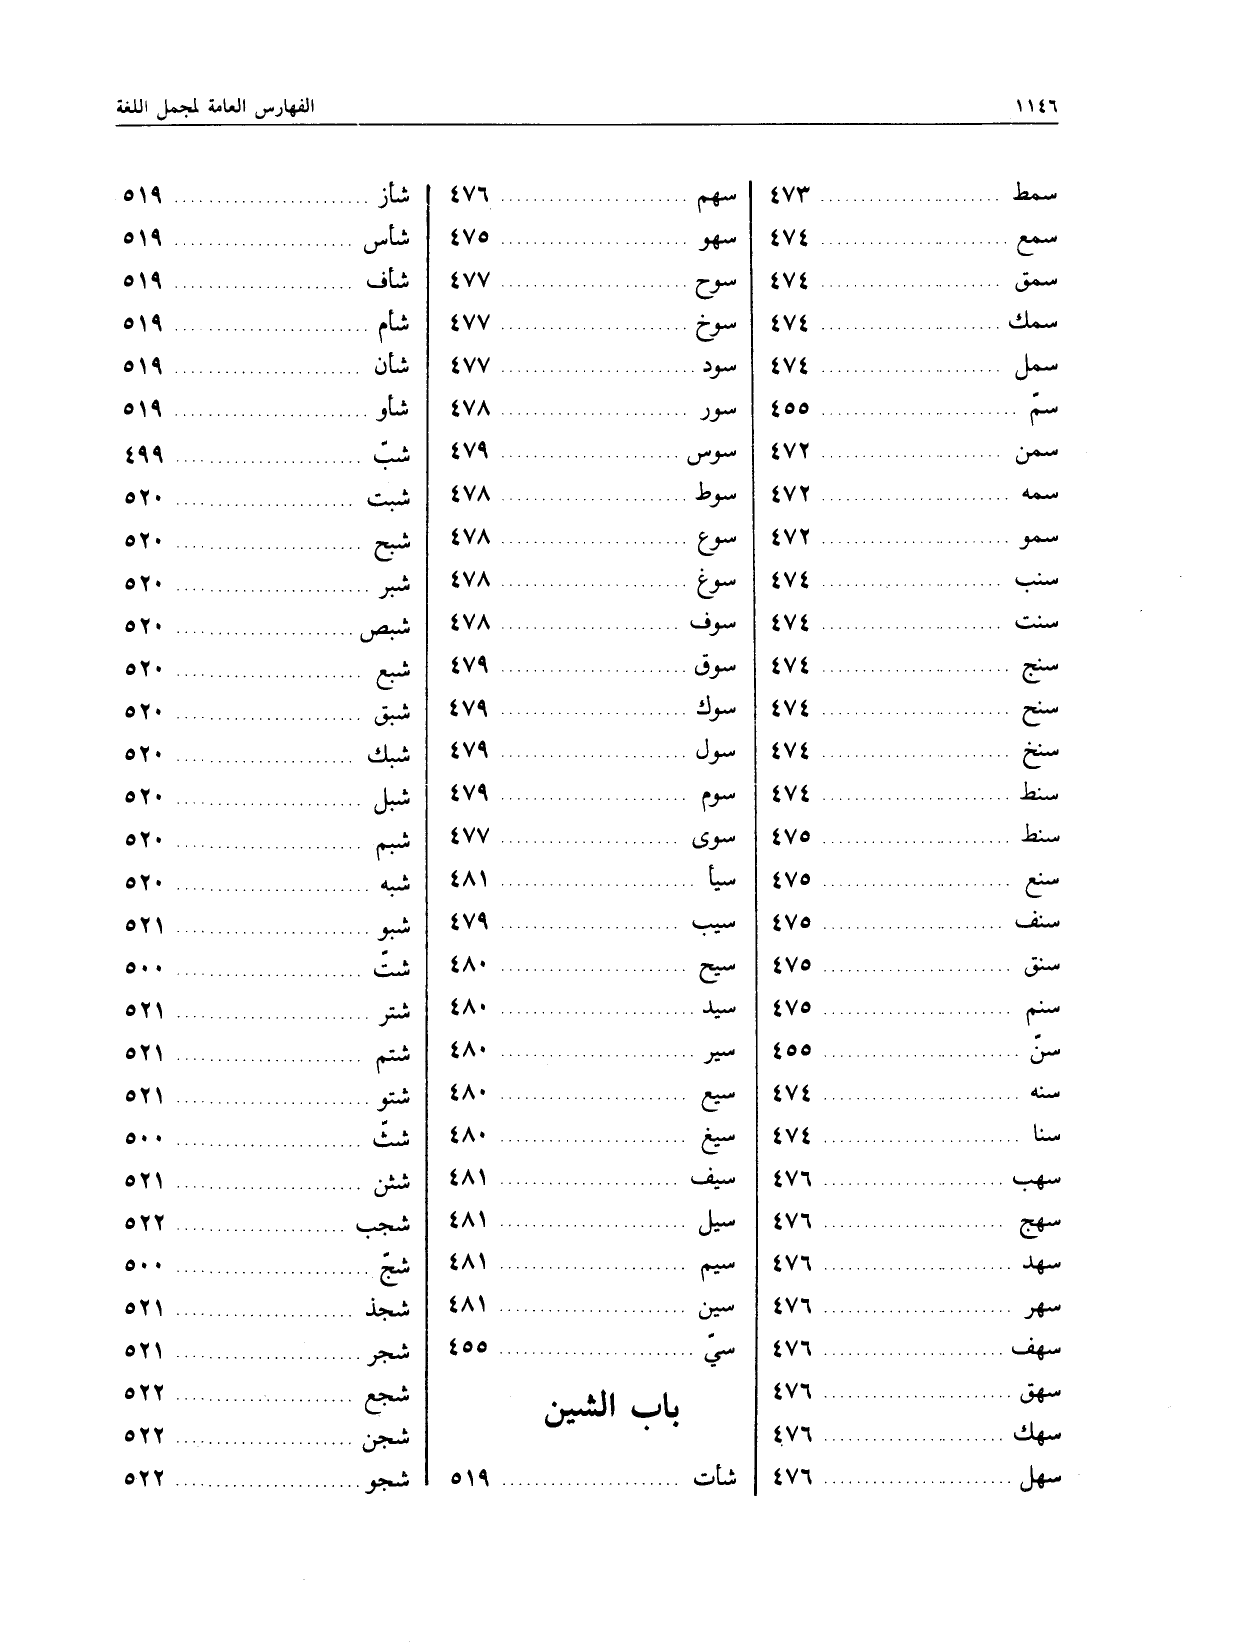 ١١٤٦
الفهارس العامة لمجمل اللغة
سمط ٤٧٣
سمع ٤٧٤
سمق ٤٧٤
سمك ٤٧٤
سمل ٤٧٤
سمّ ٤٥٥
سمن ٤٧٢
سمه ٤٧٢
سمو ٤٧٢
سنب ٤٧٤
سنت ٤٧٤
سنج ٤٧٤
سنح ٤٧٤
سنخ ٤٧٤
سنط ٤٧٤
سنط ٤٧٥
سنع ٤٧٥
سنف ٤٧٥
سنق ٤٧٥
سنم ٤٧٥
سنّ ٤٥٥
سنه ٤٧٤
سنا ٤٧٤
سهب ٤٧٦
سهج ٤٧٦
سهد ٤٧٦
سهر ٤٧٦
سهف ٤٧٦
سهق ٤٧٦
سهك ٤٧٦
سهل ٤٧٦
سهم ٤٧٦
سهو ٤٧٥
سوح ٤٧٧
سوخ ٤٧٧
سود ٤٧٧
سور ٤٧٨
سوس ٤٧٩
سوط ٤٧٨
سوع ٤٧٨
سوغ ٤٧٨
سوف ٤٧٨
سوق ٤٧٩
سوك ٤٧٩
سول ٤٧٩
سوم ٤٧٩
سوى ٤٧٧
سيأ ٤٨١
سيب ٤٧٩
سيح ٤٨٠
سيد ٤٨٠
سير ٤٨٠
سيع ٤٨٠
سيغ ٤٨٠
سيف ٤٨١
سيل ٤٨١
سيم ٤٨١
سين ٤٨١
سيّ ٤٥٥
باب الشين
شأت ٥١٩
شأز ٥١٩
شأس ٥١٩
شأف ٥١٩
شأم ٥١٩
شأن ٥١٩
شأو ٥١٩
شبّ ٤٩٩
شبت ٥٢٠
شبح ٥٢٠
شبر ٥٢٠
شبص ٥٢٠
شبع ٥٢٠
شبق ٥٢٠
شبك ٥٢٠
شبل ٥٢٠
شبم ٥٢٠
شبه ٥٢٠
شبو ٥٢١
شتّ ٥٠٠
شتر ٥٢١
شتم ٥٢١
شتو ٥٢١
شثّ ٥٠٠
شثن ٥٢١
شجب ٥٢٢
شجّ ٥٠٠
شجذ ٥٢١
شجر ٥٢١
شجع ٥٢٢
شجن ٥٢٢
شجو ٥٢٢